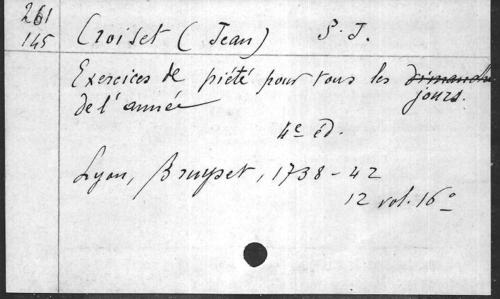 261
145
Croiset (Jean) S. J.
Exercices de piété pour tous les dimanch
jours.
de l'année
4e éd.
Lyon, Bruyset, 1738-42
12 vol. 16°